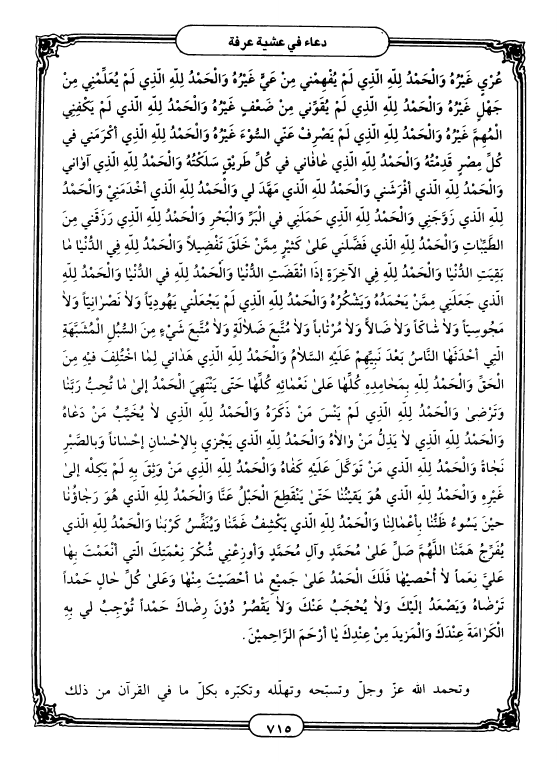 دعاء في عشية عرفة
عُرْيٍ غَيْرُهُ وَالْحَمْدُ لِلّهِ الَّذِي لَمْ يُفْهِمْني مِنْ عَيٍّ غَيْرُهُ وَالْحَمْدُ لِلّهِ الَّذِي لَمْ يُعَلِّمْنِي مِنْ
جَهْلٍ غَيْرُهُ وَالْحَمْدُ لِلّهِ الَّذِي لَمْ يُقَوِّني مِنْ ضَعْفٍ غَيْرُهُ وَالْحَمْدُ لِلّهِ الَّذي لَمْ يَكْفِنِي
الْمُهِمَّ غَيْرُهُ وَالْحَمْدُ لِلّهِ الَّذي لَمْ يَصْرِفْ عَنّي السُّوْءَ غَيْرُهُ وَالْحَمْدُ لِلّهِ الَّذي أكْرَمَني في
كُلِّ مِصْرٍ قَدِمْتُهُ وَالْحَمْدُ لِلّهِ الَّذي عٰافٰاني في كُلِّ طَريْقٍ سَلَكْتُهُ وَالْحَمْدُ لِلّهِ الَّذي آوٰاني
وَالْحَمْدُ لِلّهِ الَّذي أفْرَشَني وَالْحَمْدُ لِلّهِ الَّذي مَهَّدَ لي وَالْحَمْدُ لِلّهِ الَّذي أخْدَمَنِيْ وَالْحَمْدُ
لِلّهِ الَّذي زَوَّجَنِي وَالْحَمْدُ لِلّهِ الَّذي حَمَلَنِي في الْبَرِّ وَالْبَحْرِ وَالْحَمْدُ لِلّهِ الَّذي رَزَقَني مِنَ
الطَّيِّبٰاتِ وَالْحَمْدُ لِلّهِ الَّذي فَضَّلَني عَلىٰ كَثيْرٍ مِمَّنْ خَلَقَ تَفْضِيلاً وَالْحَمْدُ لِلّهِ فِي الدُّنْيٰا مٰا
بَقِيَتِ الدُّنْيٰا وَالْحَمْدُ لِلّهِ فِي الآخِرَةِ إذَا انْقَضَتِ الدُّنْيٰا وَالْحَمْدُ لِلّهِ في الدُّنْيٰا وَالْحَمْدُ لِلّهِ
الَّذي جَعَلَني مِمَّنْ يَحْمَدُهُ وَيَشْكُرُهُ وَالْحَمْدُ لِلّهِ الَّذي لَمْ يَجْعَلْني يَهُودِيّاً وَلاٰ نَصْرٰانِيّاً وَلاٰ
مَجُوسِيّاً وَلاٰ شٰاكّاً وَلاٰ ضٰالاًّ وَلاٰ مُرْتٰاباً وَلاٰ مُتَّبِعَ ضَلاٰلَةٍ وَلاٰ مُتَّبِعَ شَيْءٍ مِنَ السُّبُلِ الْمُشَبَّهَةِ
الَّتِي أحْدَثَهَا النَّاسُ بَعْدَ نَبِيِّهِمْ عَلَيْهِ السَّلاٰمُ وَالْحَمْدُ لِلّهِ الَّذي هَدٰاني لِمٰا اخْتُلِفَ فيْهِ مِنَ
الْحَقِّ وَالْحَمْدُ لِلّهِ بِمَحٰامِدِهِ كُلِّهٰا عَلىٰ نَعْمٰائِهِ كُلِّهٰا حَتّى يَنْتَهِيَ الْحَمْدُ إلىٰ مٰا تُحِبُّ رَبَّنٰا
وَتَرْضىٰ وَالْحَمْدُ لِلّهِ الَّذي لَمْ يَنْسَ مَنْ ذَكَرَهُ وَالْحَمْدُ لِلّهِ الَّذِي لاٰ يُخَيِّبُ مَنْ دَعٰاهُ
وَالْحَمْدُ لِلّهِ الَّذي لاٰ يَذِلُّ مَنْ وٰالاٰهُ وَالْحَمْدُ لِلّهِ الَّذي يَجْزِي بِالإحْسٰانِ إحْسٰاناً وَبِالصَّبْرِ
نَجٰاةً وَالْحَمْدُ لِلّهِ الَّذي مَنْ تَوَكَّلَ عَلَيْهِ كَفٰاهُ وَالْحَمْدُ لِلّهِ الَّذي مَنْ وَثِقَ بِهِ لَمْ يَكِلْهُ إلىٰ
غَيْرِهِ وَالْحَمْدُ لِلّهِ الَّذي هُوَ يَقيْنُنٰا حَتّىٰ يَنْقَطِعَ الْحَبْلُ عَنَّا وَالْحَمْدُ لِلّهِ الَّذي هُوَ رَجٰاؤُنٰا
حيْنَ يَسُوءُ ظَنُّنٰا بِأعْمٰالِنٰا وَالْحَمْدُ لِلّهِ الَّذي يَكْشِفُ غَمَّنٰا وَيُنَفِّسُ كَرْبَنٰا وَالْحَمْدُ لِلّهِ الَّذي
يُفَرِّجُ هَمَّنٰا اللَّهُمَّ صَلِّ عَلىٰ مُحَمَّدٍ وَآلِ مُحَمَّدٍ وَأوزِعْني شُكْرَ نِعْمَتِكَ الَّتي أنْعَمْتَ بِهٰا
عَلَيَّ نِعَماً لاٰ أُحْصيْهٰا فَلَكَ الْحَمْدُ عَلىٰ جَميْعِ مٰا أحْصَيْتَ مِنْهٰا وَعَلىٰ كُلِّ حٰالٍ حَمْداً
تَرْضٰاهُ وَيَصْعَدُ إلَيْكَ وَلاٰ يُحْجَبُ عَنْكَ وَلاٰ يَقْصُرُ دُوْنَ رِضٰاكَ حَمْداً تُوْجِبُ لي بِهِ
الْكَرٰامَةَ عِنْدَكَ وَالْمَزيدَ مِنْ عِنْدِكَ يٰا أرْحَمَ الرَّاحِميْنَ.
وتحمد الله عزّ وجلّ وتسبّحه وتهلّله وتكبّره بكلّ ما في القرآن من ذلك
٧١٥